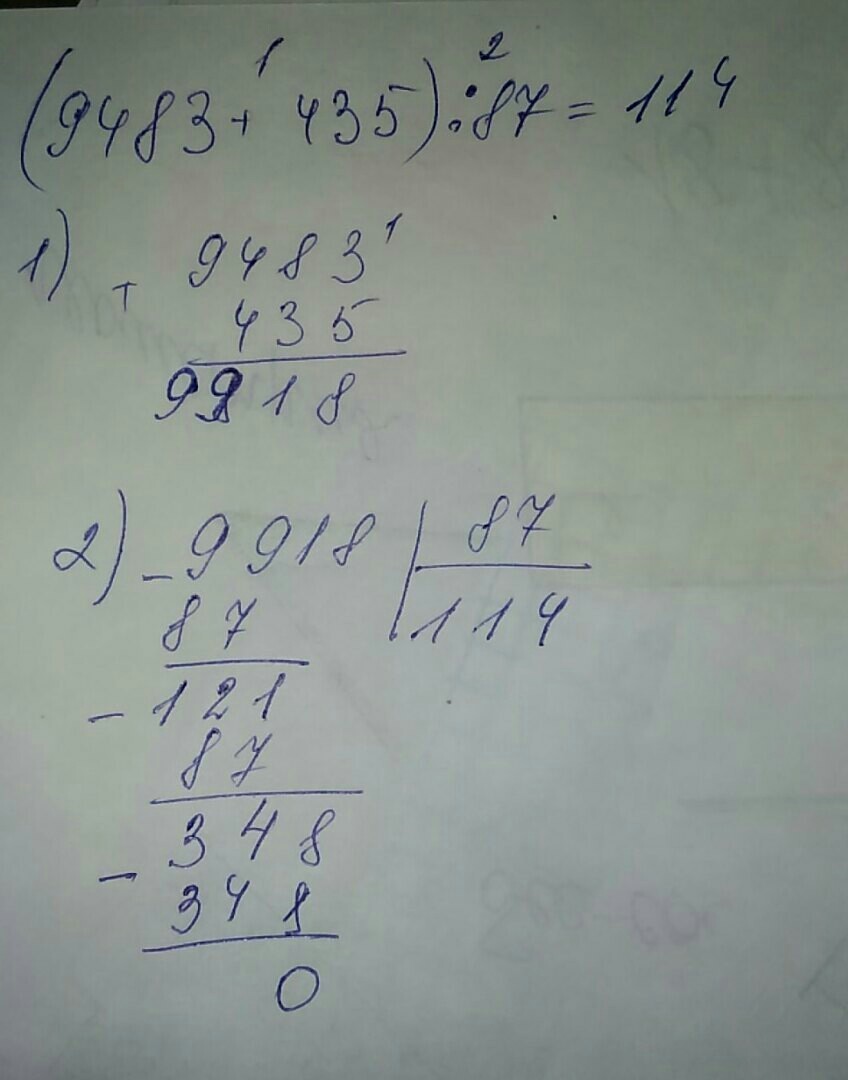 1 2
(9483 + 435) : 87 = 114
1) + 9483 1
435
9918
2) - 9918 | 87
87 114
- 121
87
348
- 348
0